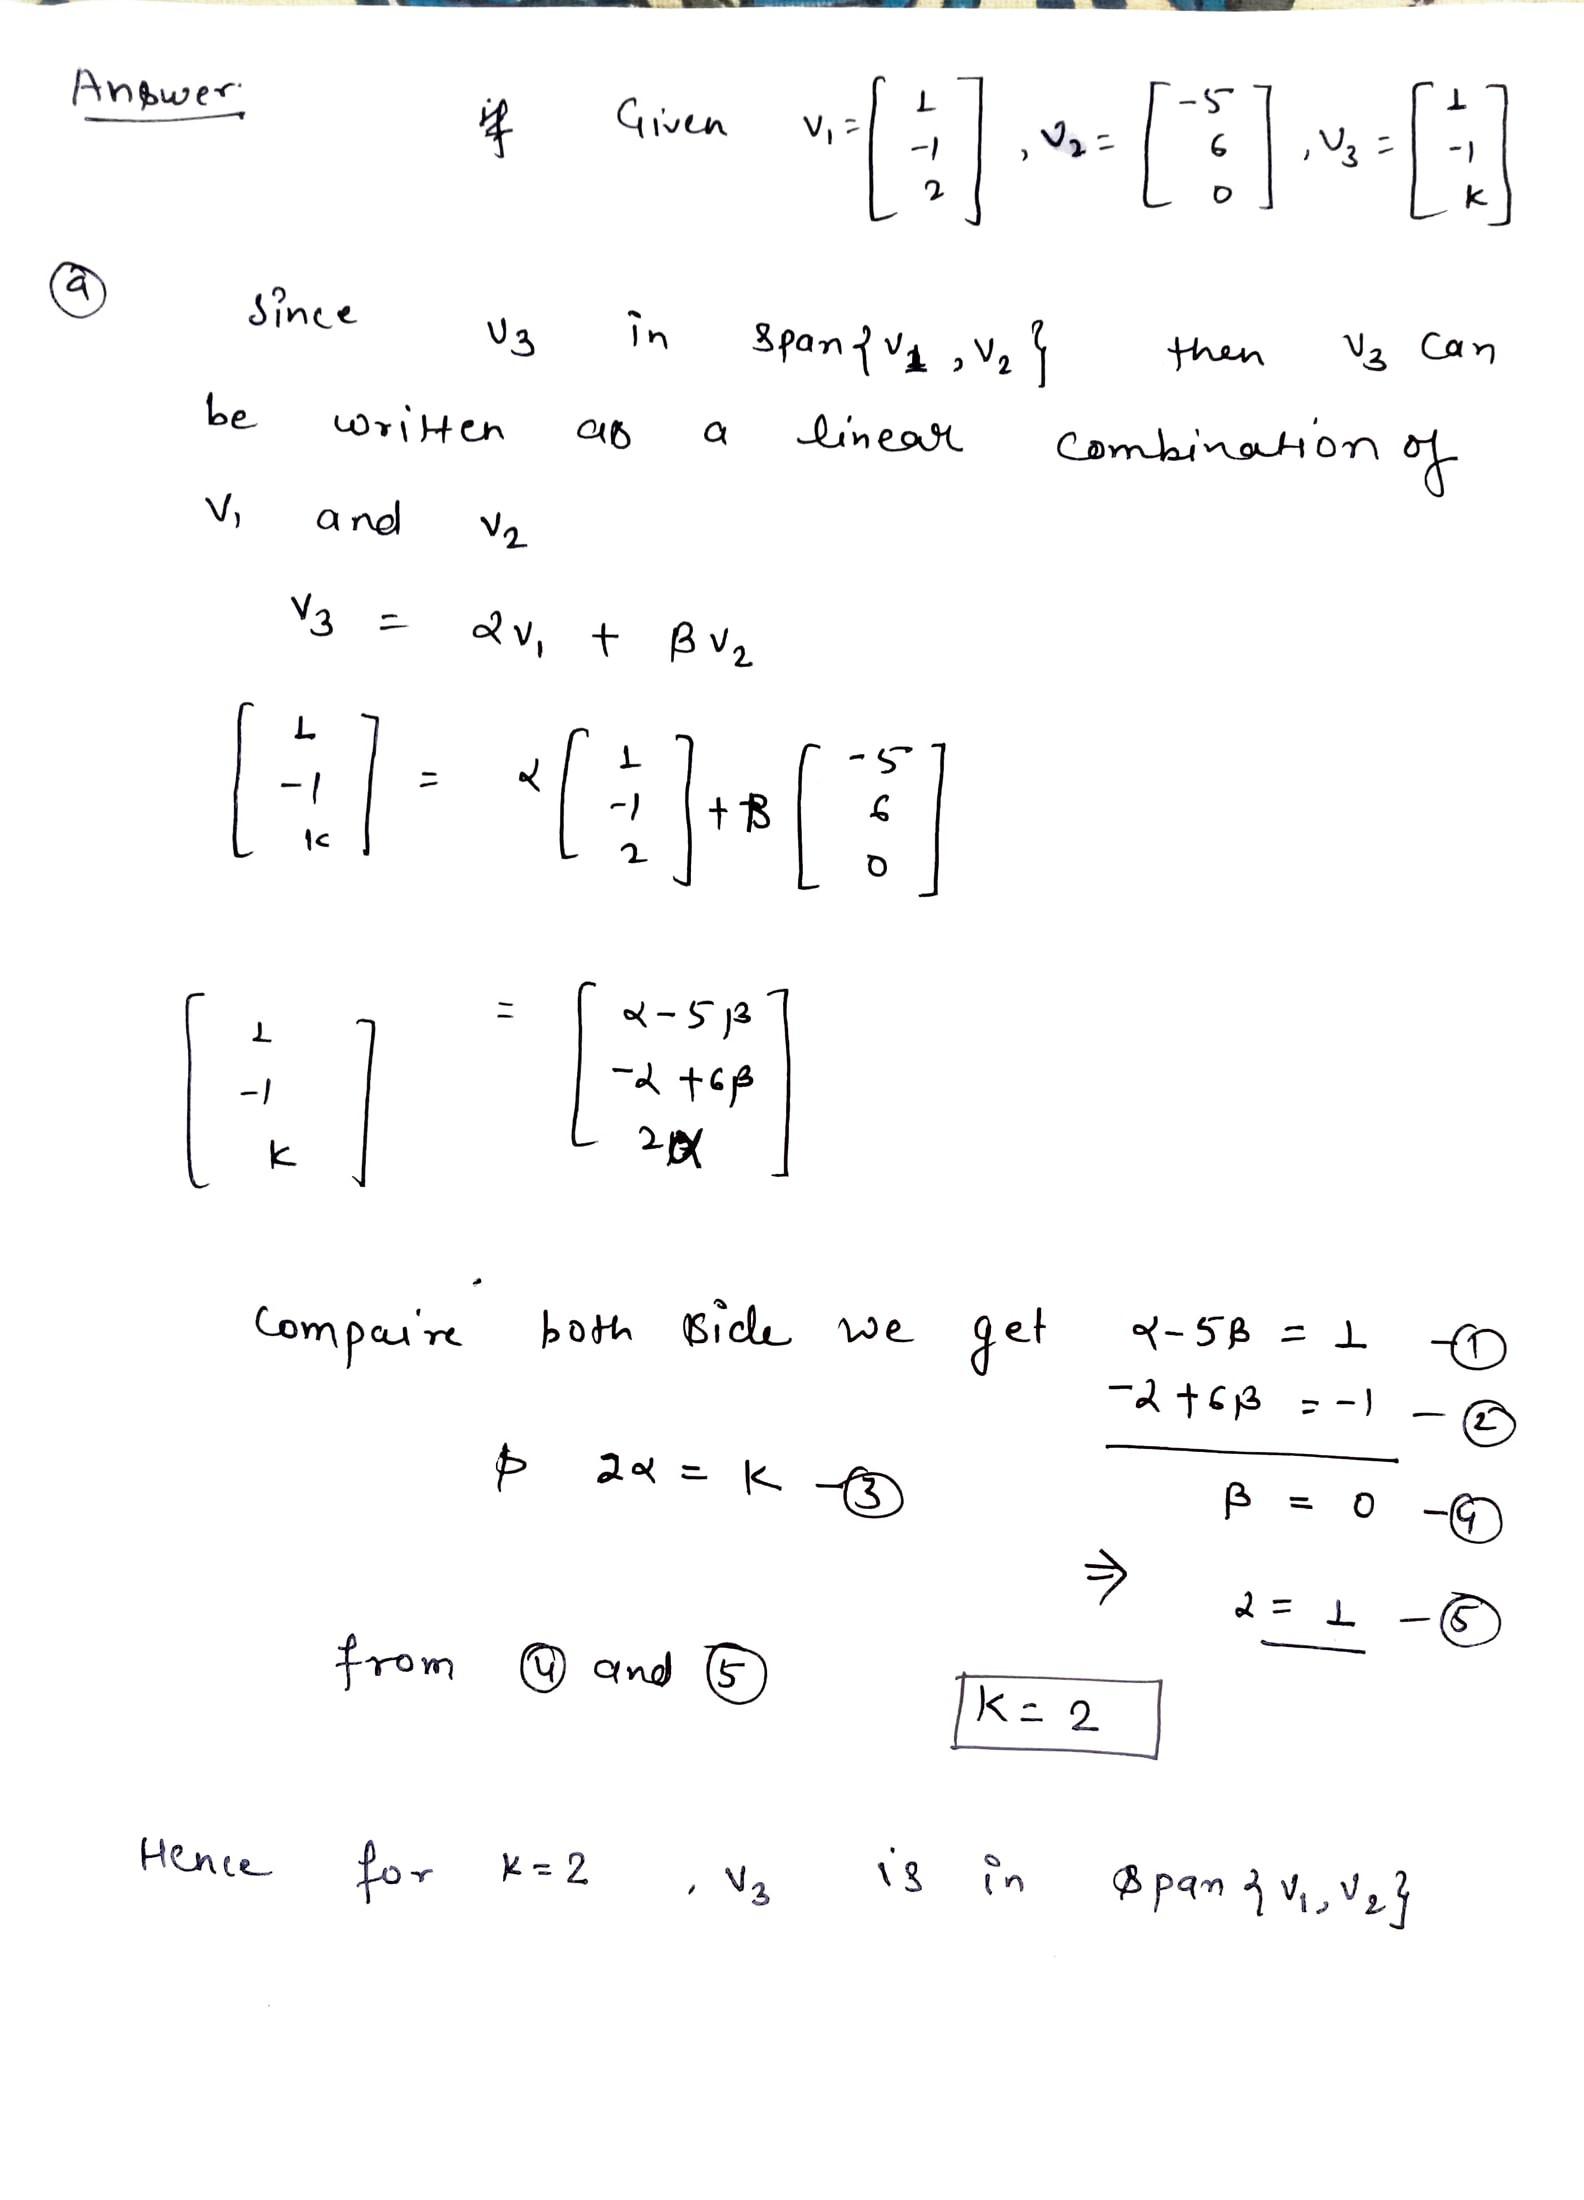 Answer:
if Given v₁ = [1 -1 2], v₂ = [-5 6 0], v₃ = [1 -1 k]
(a) Since v₃ in span{v₁, v₂} then v₃ can
be written as a linear combination of
v₁ and v₂
v₃ = αv₁ + βv₂
[1 -1 k] = α[1 -1 2] + β[-5 6 0]
[1 -1 k] = [α-5β -α+6β 2α]
Compaire both side we get α-5β = 1 -①
-α+6β = -1 -②
2α = k -③
β = 0 -④
⇒ α = 1 -⑤
from ④ and ⑤
k = 2
Hence for k=2, v₃ is in span{v₁, v₂}